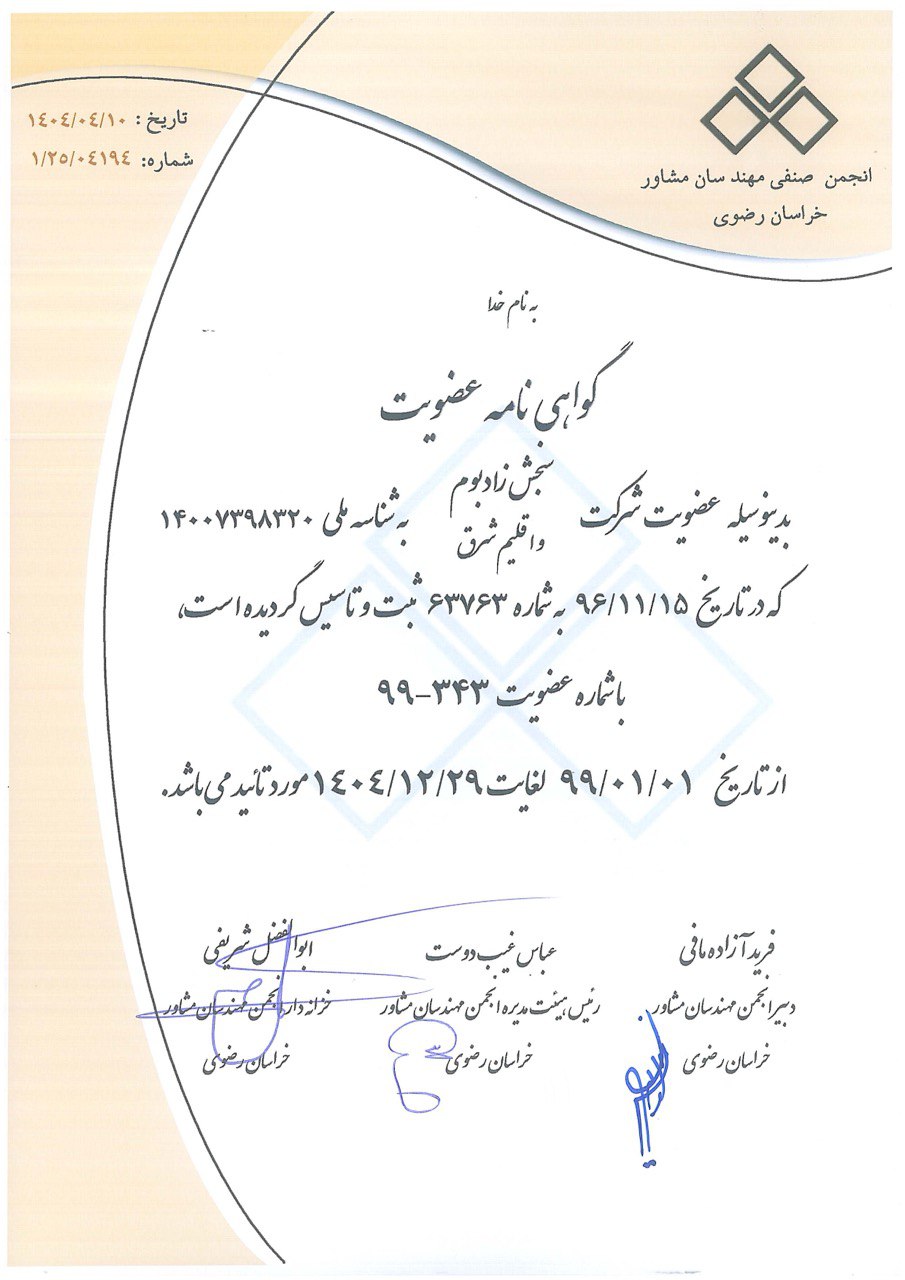 انجمن صنفی مهندسان مشاور
خراسان رضوی
تاریخ : ۱٤۰٤/۰٤/۱۰
شماره: ۱/۲۵/۰٤۱۹٤
به نام خدا
گواهی نامه عضویت
بدینوسیله عضویت شرکت سنجش زادبوم واقلیم شرق به شناسه ملی ۱۴۰۰۷۳۹۸۳۲۰
که در تاریخ ۹۶/۱۱/۱۵ به شماره ۶۳۷۶۳ ثبت و تاسیس گردیده است،
با شماره عضویت ۳۴۳-۹۹
از تاریخ ۹۹/۰۱/۰۱ لغایت ۱٤۰٤/۱۲/۲۹ مورد تائید می باشد.
فرید آزاده مافی
دبیر انجمن مهندسان مشاور
خراسان رضوی
عباس غیب دوست
رئیس هیئت مدیره انجمن مهندسان مشاور
خراسان رضوی
ابوالفضل شریفی
خزانه دار انجمن مهندسان مشاور
خراسان رضوی